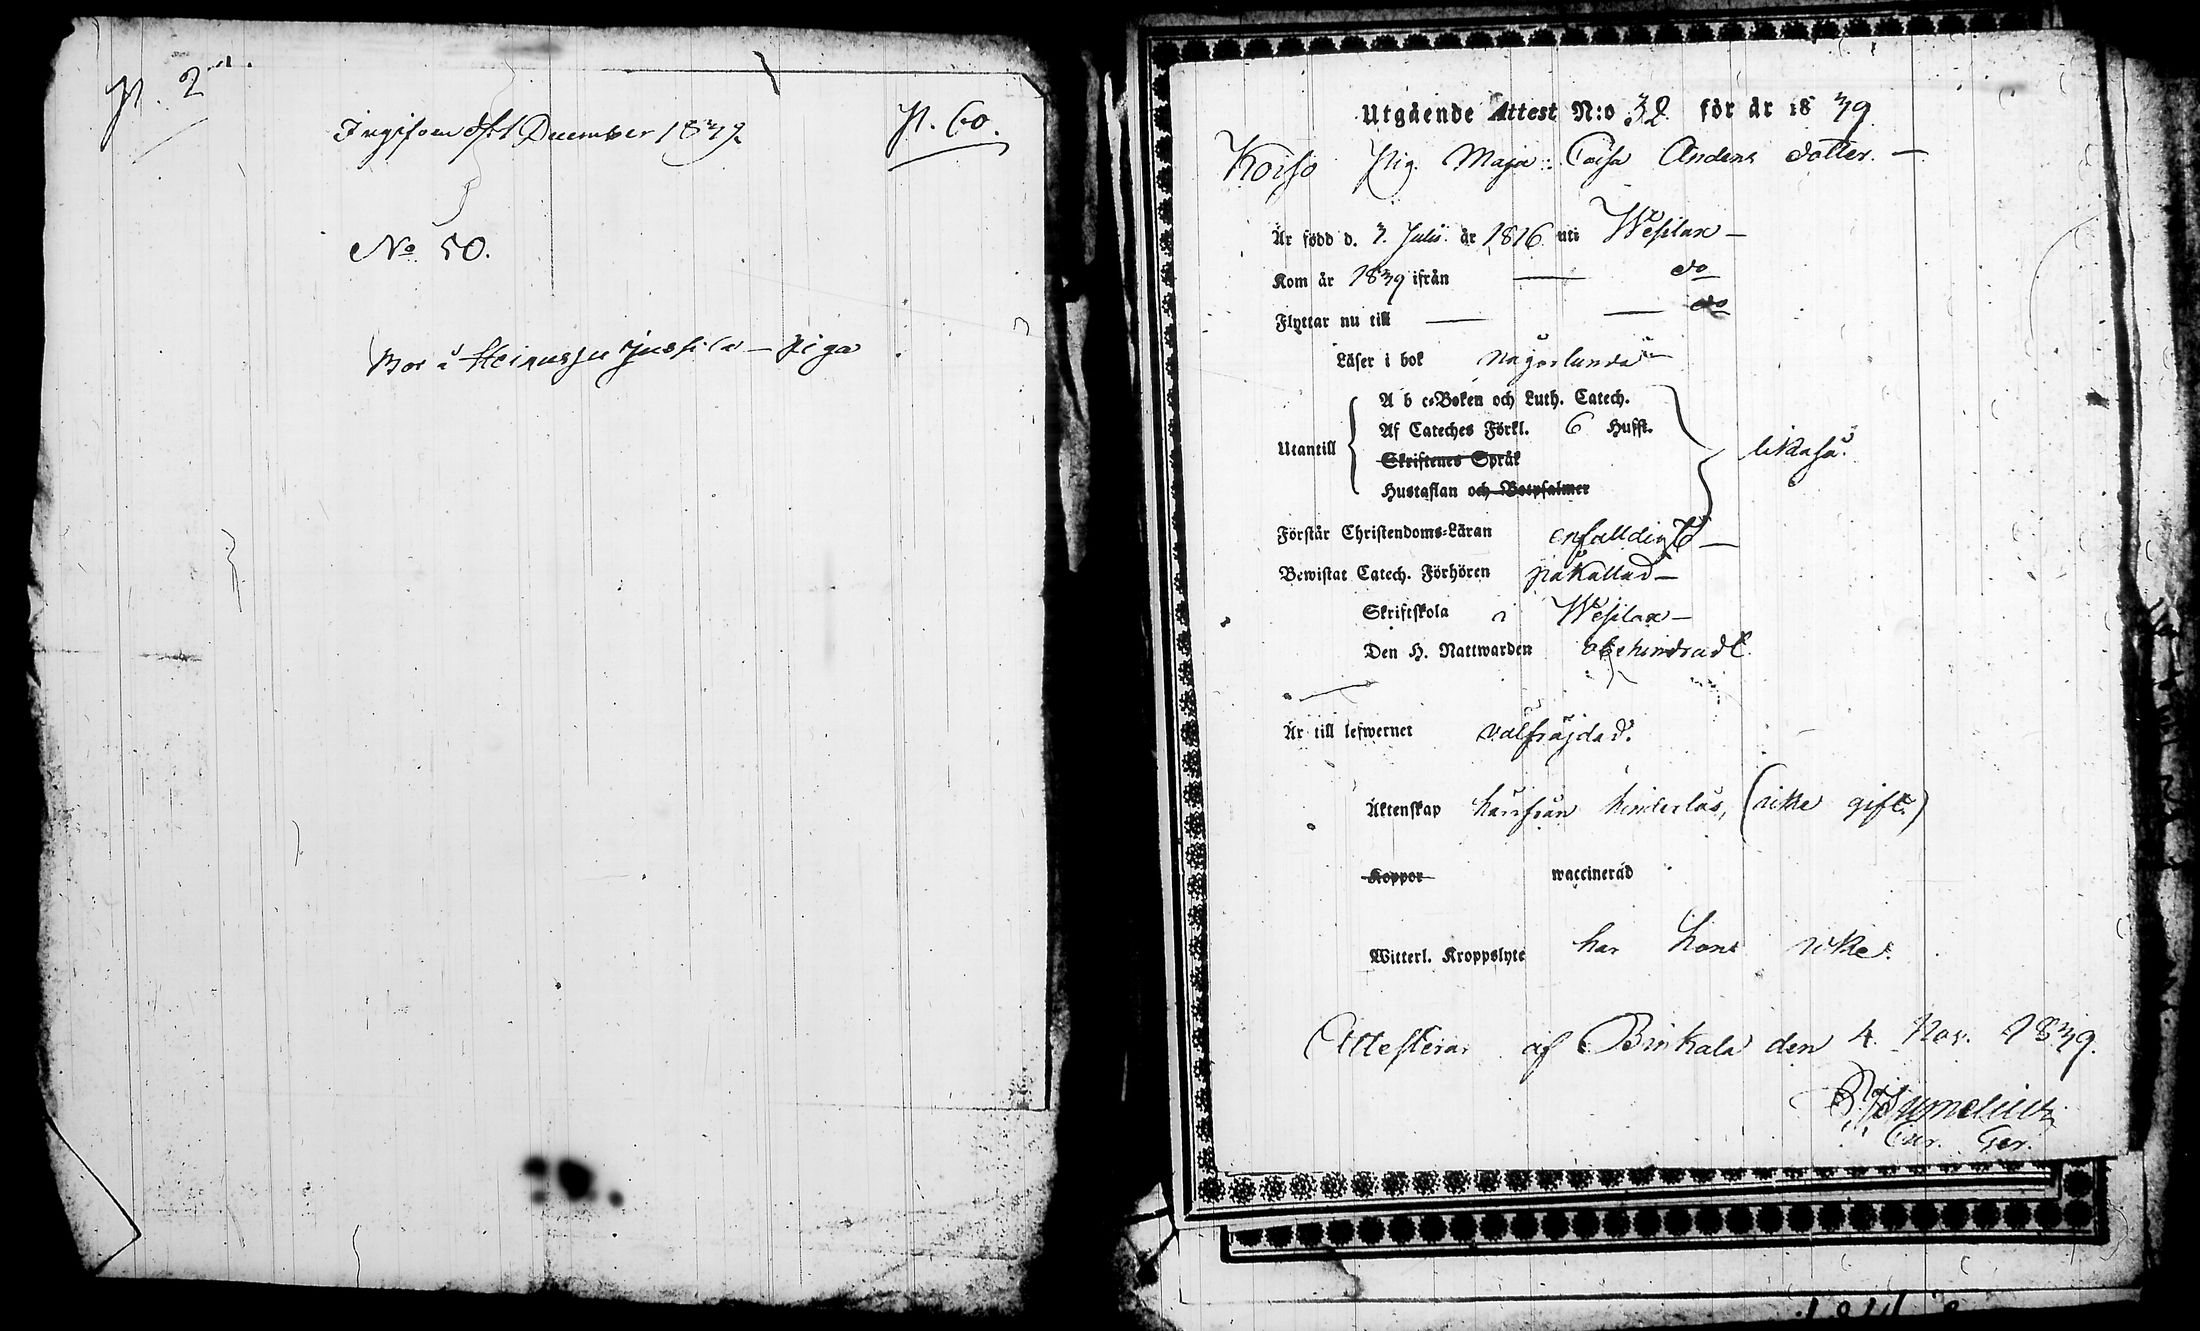 p. 2
p. 60.
December 1839.
No 50.
Bor i Jussila — piga
Utgående Attest N:o 32 för år 1839
Pig. Maja Caisa Anders dotter. —
Är född d. 7. Julii år 1816 uti Wesilax —
Kom år 1839 ifrån — do
Flyttar nu till — — do
Läser i bok någorlunda
A b c-Boken och Luth. Catech.
Af Cateches Förkl. 6 Hufst.
Utantill
Skriftenes Språk
likaså.
Hustaflan och Botpsalmer
Förstår Christendoms-Läran enfalldigt —
Bewistat Catech. Förhören påkallad —
Skriftskola i Wesilax —
Den H. Nattwarden obehindradt.
Är till lefwernet välfräjdad.
Äktenskap härifrån hinderlös, (icke gift.)
Koppor waccinerad
Witterl. Kroppslyte har hon icke.
Attesterar af Brinkala den 4. Nov. 1839.